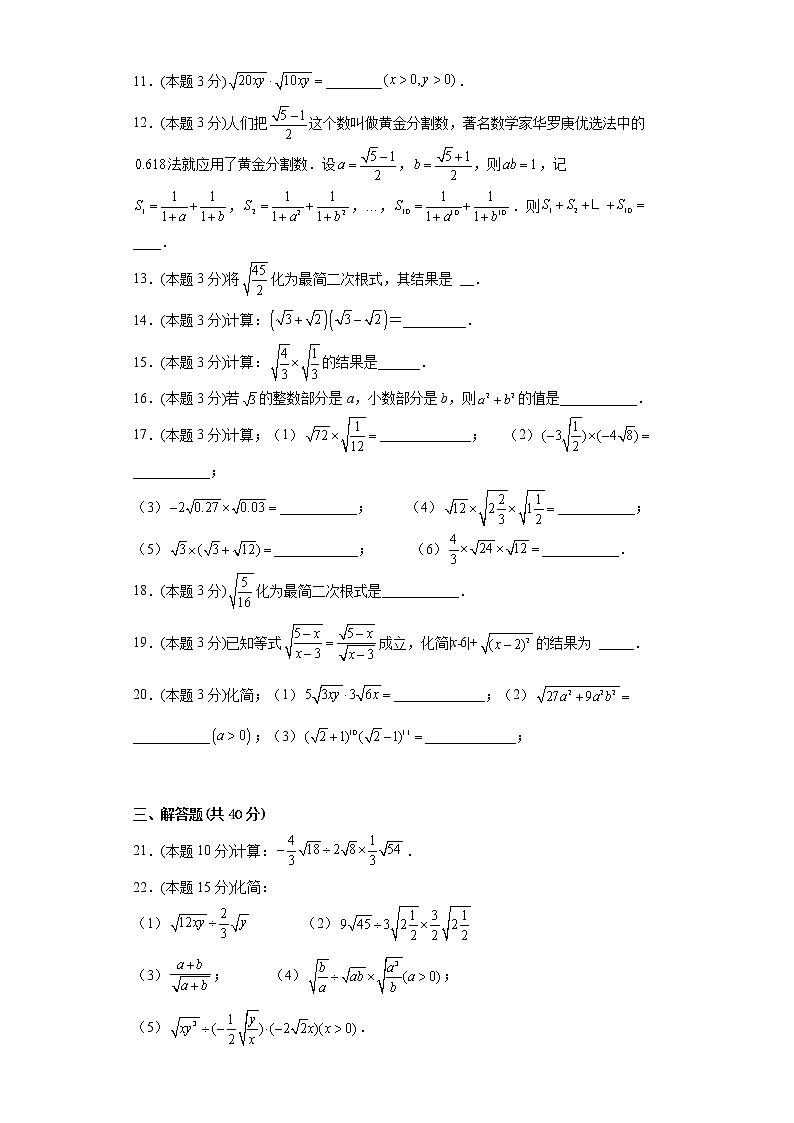 11.(本题3分)√(20xy)·√(10xy)=________(x>0,y>0).
12.(本题3分)人们把(√5-1)/2这个数叫做黄金分割数,著名数学家华罗庚优选法中的
0.618法就应用了黄金分割数.设a=(√5-1)/2,b=(√5+1)/2,则ab=1,记
S₁=1/(1+a)+1/(1+b),S₂=1/(1+a²)+1/(1+b²),…,S₁₀=1/(1+a¹⁰)+1/(1+b¹⁰).则S₁+S₂+∟+S₁₀=
____.
13.(本题3分)将√(45/2)化为最简二次根式,其结果是 __.
14.(本题3分)计算:(√3+√2)(√3-√2)=_________.
15.(本题3分)计算:√(4/3)×√(1/3)的结果是______.
16.(本题3分)若√3的整数部分是a,小数部分是b,则a²+b²的值是___________.
17.(本题3分)计算;(1)√72×√(1/12)=_____________; (2)(-3√(1/2))×(-4√8)=
___________;
(3)-2√0.27×√0.03=___________; (4)√12×√(2 2/3)×√(1 1/2)=___________;
(5)√3×(√3+√12)=____________; (6)4/3×√24×√12=___________.
18.(本题3分)√(5/16)化为最简二次根式是___________.
19.(本题3分)已知等式√((5-x)/(x-3))=√(5-x)/√(x-3)成立,化简|x-6|+√((x-2)²)的结果为 _____.
20.(本题3分)化简;(1)5√(3xy)·3√(6x)=_____________;(2)√(27a²+9a²b²)=
___________(a>0);(3)(√2+1)¹⁰(√2-1)¹¹=_____________;
三、解答题(共40分)
21.(本题10分)计算:-4/3√18÷2√8×1/3√54.
22.(本题15分)化简:
(1)√(12xy)÷2/3√y (2)9√45÷3√(2 1/2)×3/2√(2 1/2)
(3)(a+b)/√(a+b); (4)√(b/a)÷√(ab)×√(a³/b)(a>0);
(5)√(xy³)÷(-1/2√(y/x))·(-2√2x)(x>0).